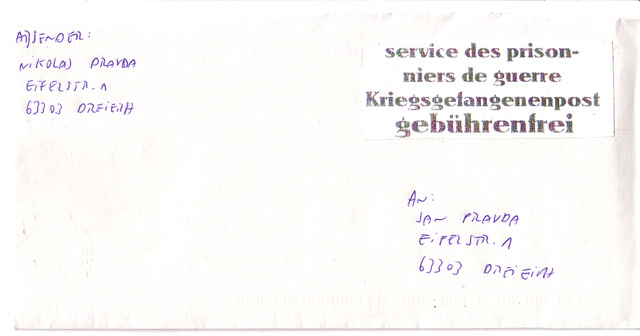 ABSENDER:
NIKOLAS PRAVDA
EIFELSTR. 1
63303 DREIEICH
service des prison-
niers de guerre
Kriegsgefangenenpost
gebührenfrei
AN:
JAN PRAVDA
EIFELSTR. 1
63303 DREIEICH